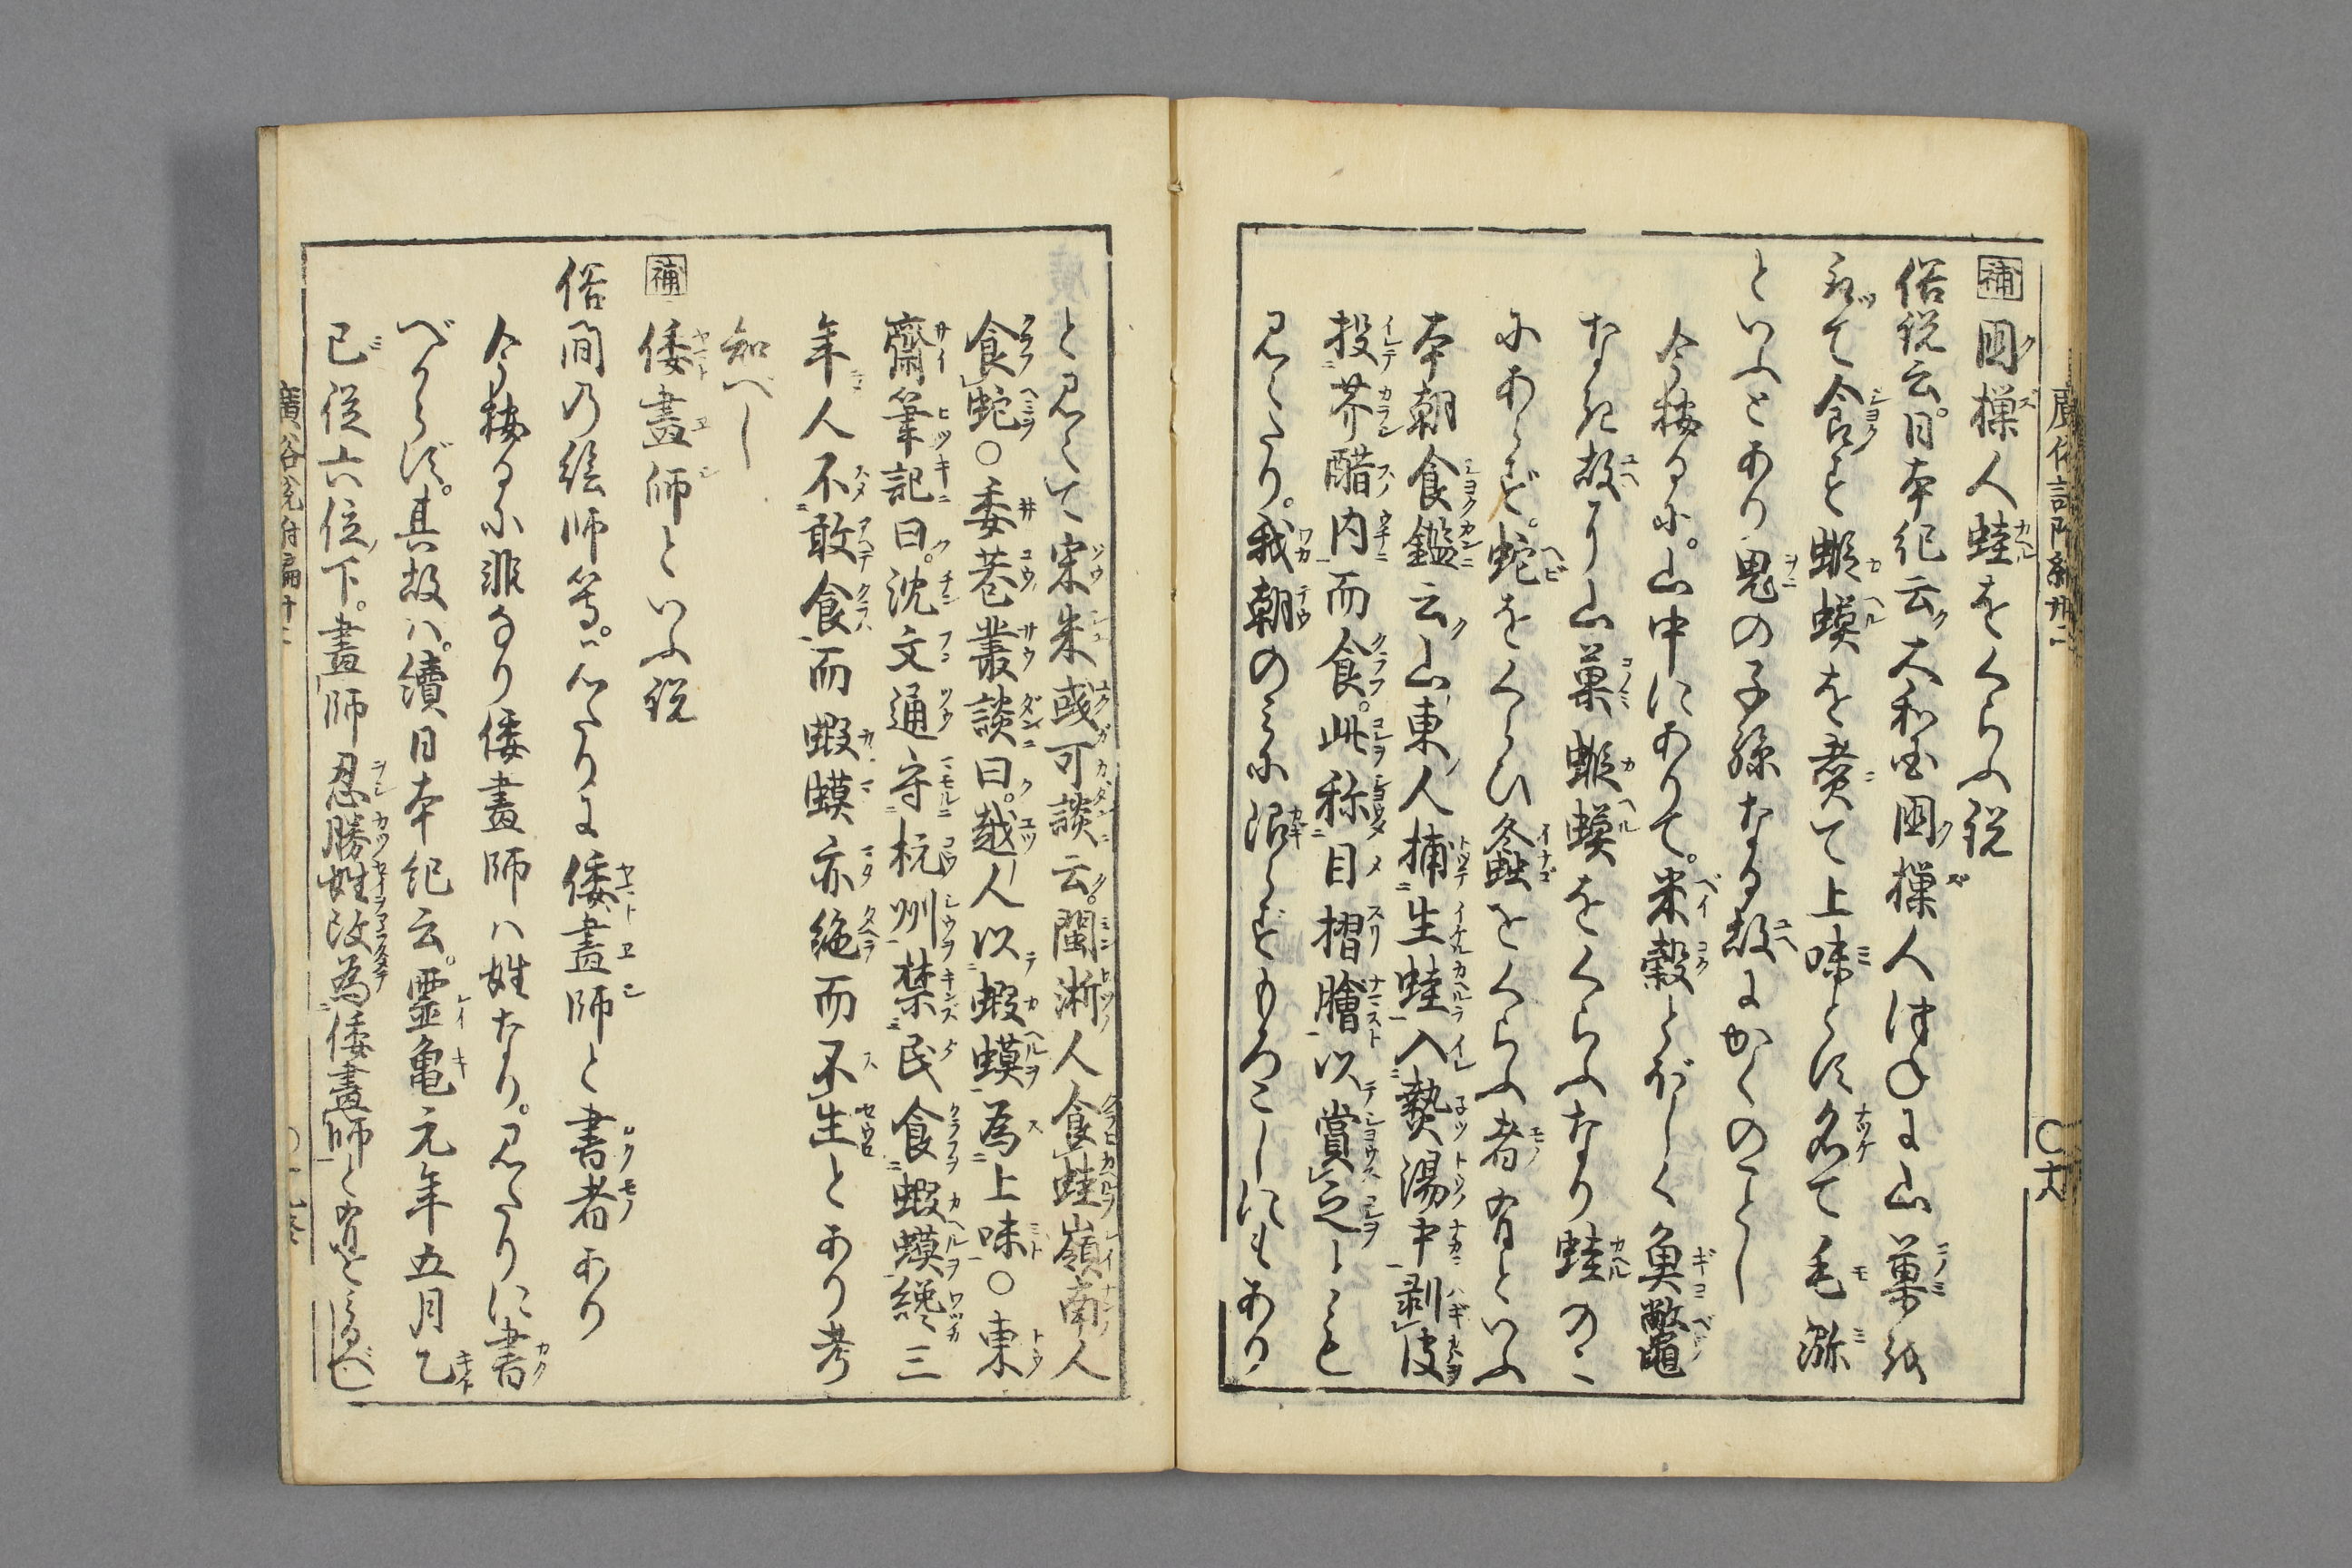 補 国樔人蛙をくらふ説
俗説云。日本紀云大和国国樔人はつねに山菓を
取て食とし蝦蟇を煮て上味とす名て毛瀰
といふとあり鬼の子孫なる故にかくのことし
今按るに。山中にありて。米穀とぼしく魚鼈
なき故に山菓蝦蟇をくらふなり蛙のミ
にあらず。蛇をくらひ螽をくらふ者有といふ
本朝食鑑云山東人捕生蛙入熱湯中剥皮
投芥醋内而食。此称目摺膾以賞之とも
見へたり。我朝のミに限らずもろこしにもあり
廣俗説附編十二
と見へて宋朱彧可談云。閩浙人食蛙嶺南人
食蛇〇委巷叢談曰。越人以蝦蟇為上味〇東
齋筆記曰。沈文通守杭州禁民食蝦蟇纔三
年人不敢食而蝦蟇亦絶而不生とあり考
知べし
補 倭畫師といふ説
俗間乃絵師等。心へたりに倭畫師と書者あり
今按るに非なり倭畫師ハ姓なり。見たりに書
べからず。其故ハ。續日本紀云。霊亀元年五月乙
巳従六位下。畫師忍勝姓改為倭畫師と有をミるべし
廣俗説附編十二